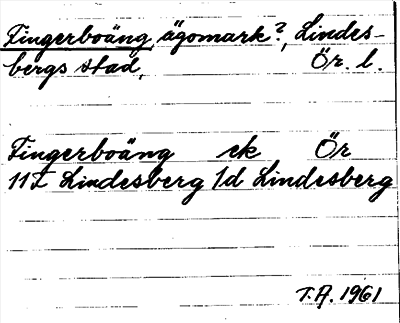 Fingerboäng, ägomark?, Lindes-
bergs stad, Ör. l.
Fingerboäng ek Ör
11I Lindesberg 1d Lindesberg
T.A. 1961